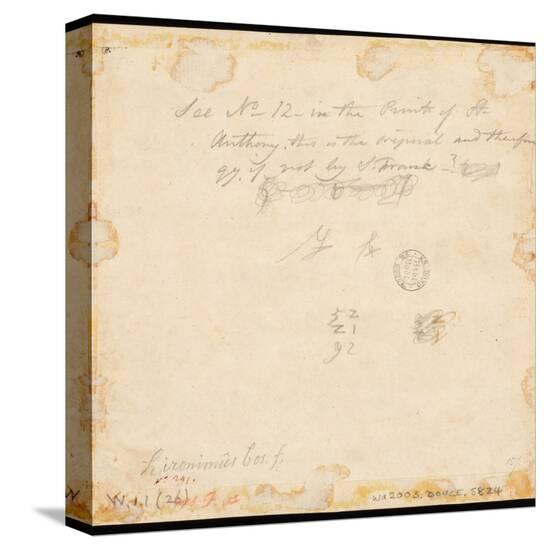 See No 12 - in the Prints of St
Anthony, this is the original and therefore
qy. if not by S. Franck ?
52
21
92
hironimus bos. f.
No 291.
W.1.1 (26)
WA2003. DOUCE. 5824
151